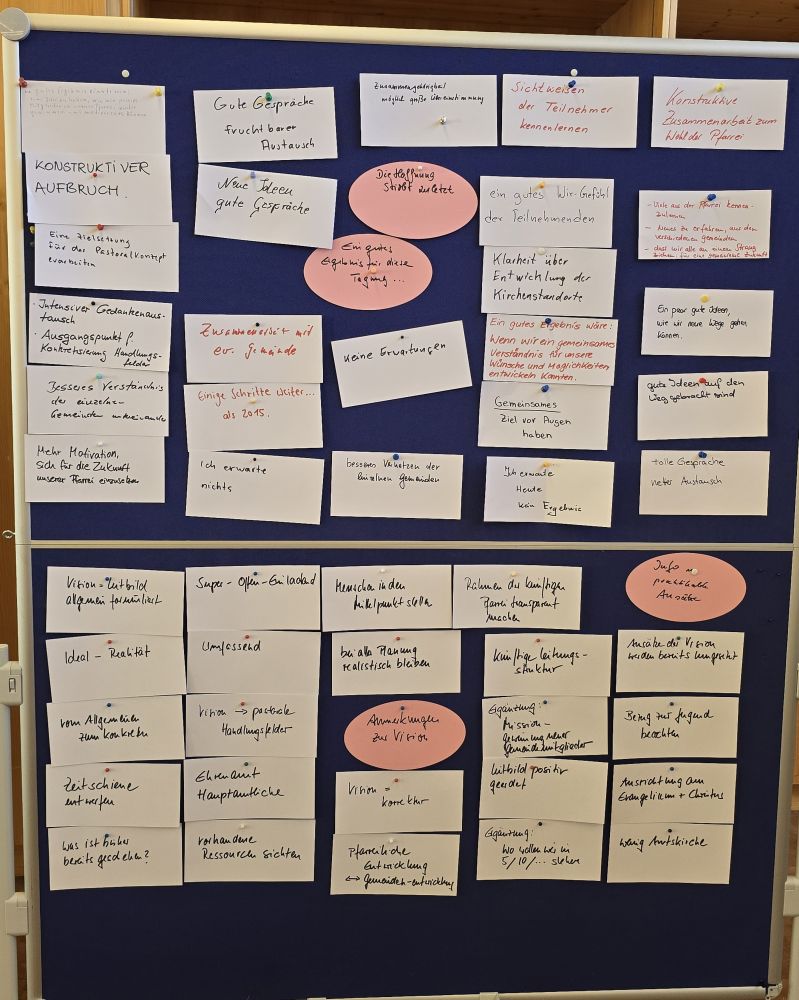 Gute Gespräche
fruchtbarer
Austausch
Zusammengehörigkeit
möglichst große Übereinstimmung
Sichtweisen
der Teilnehmer
kennenlernen
Konstruktive
Zusammenarbeit zum
Wohl der Pfarrei
KONSTRUKTIVER
AUFBRUCH.
Neue Ideen
gute Gespräche
Die Hoffnung
stirbt zuletzt
ein gutes Wir-Gefühl
der Teilnehmenden
- Viele aus der Pfarrei kennen-
zulernen
- Neues zu erfahren, aus den
verschiedenen Gemeinden
- dass wir alle an einem Strang
ziehen für eine gemeinsame Zukunft
Eine Zielsetzung
für das Pastoralkonzept
erarbeiten
Ein gutes
Ergebnis für diese
Tagung ...
Klarheit über
Entwicklung der
Kirchenstandorte
· Intensiver Gedankenaus-
tausch
· Ausgangspunkt f.
Konkretisierung Handlungs-
felder
Zusammenarbeit mit
ev. Gemeinde
keine Erwartungen
Ein gutes Ergebnis wäre:
Wenn wir ein gemeinsames
Verständnis für unsere
Wünsche und Möglichkeiten
entwickeln könnten.
Ein paar gute Ideen,
wie wir neue Wege gehen
können.
Besseres Verständnis
der einzelnen
Gemeinden untereinander
Einige Schritte weiter...
als 2015.
Gemeinsames
Ziel vor Augen
haben
gute Ideen auf den
Weg gebracht sind
Mehr Motivation,
sich für die Zukunft
unserer Pfarrei einzusetzen
Ich erwarte
nichts
besseres Vernetzen der
einzelnen Gemeinden
Ich erwarte
Heute
kein Ergebnis
tolle Gespräche
netter Austausch
Vision = Leitbild
allgemein formuliert
Super - Offen - Einladend
Menschen in den
Mittelpunkt stellen
Rahmen der künftigen
Pfarrei transparent
machen
Info
Ansätze
Ideal - Realität
Umfassend
bei aller Planung
realistisch bleiben
Künftige Leitungs-
struktur
Ansätze der Vision
werden bereits umgesetzt
vom Allgemeinen
zum Konkreten
Vision → pastorale
Handlungsfelder
Anmerkungen
zur Vision
Ergänzung:
Mission -
Gewinnung neuer
Gemeindemitglieder
Bezug zur Jugend
beachten
Zeitschiene
entwerfen
Ehrenamt
Hauptamtliche
Vision =
korrektur
Leitbild positiv
geerdet
Ausrichtung am
Evangelium + Christus
was ist bisher
bereits geschehen?
vorhandene
Ressourcen sichten
Pfarreiliche
Entwicklung
↔ Gemeindeentwicklung
Ergänzung:
wo wollen wir in
5/10/... stehen
wenig Amtskirche